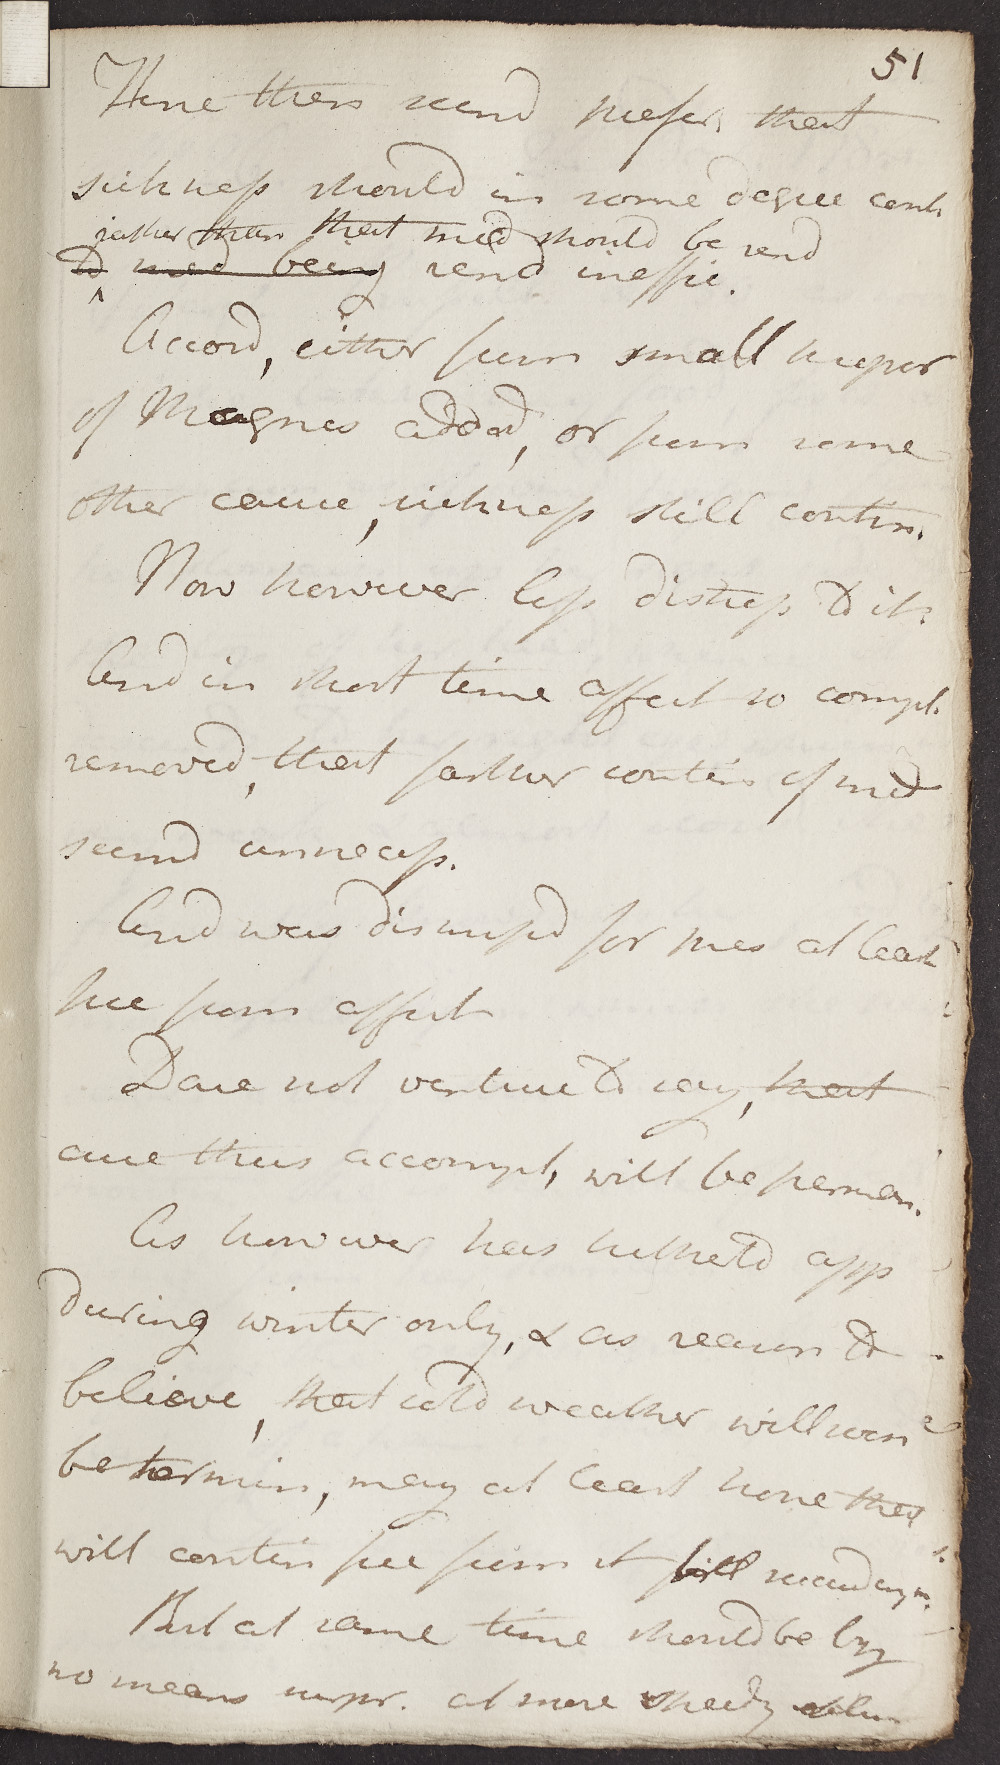 51
Hence then seemd prefer, that
sickness should in some degree contin
rather than that med should be rend
to med being rend ineffic.
Accord, either from small proper
of Magnes added, or from some
other cause, sickness still contin.
Now however less distress to it.
And in short time affect so compl.
removed, that farther contin of med
seemd unnecess.
And was dismissd for pres at least
free from affect
Dare not venture to say, that
cure thus accompl, will be perman.
As however has hitherto app
during winter only, & as reason to
believe, that cold weather will soon
be termin, may at least hope that
will contin free from it till
But at same time should be by
no means surpr. at more speedy